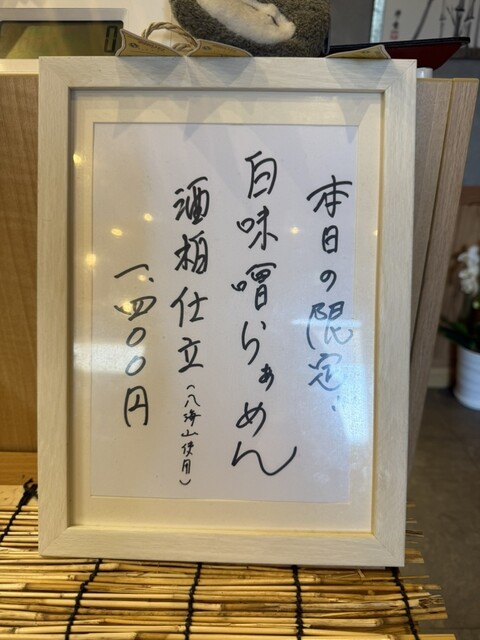 本日の限定:
白味噌らぁめん
酒粕仕立(八海山使用)
一、四〇〇円